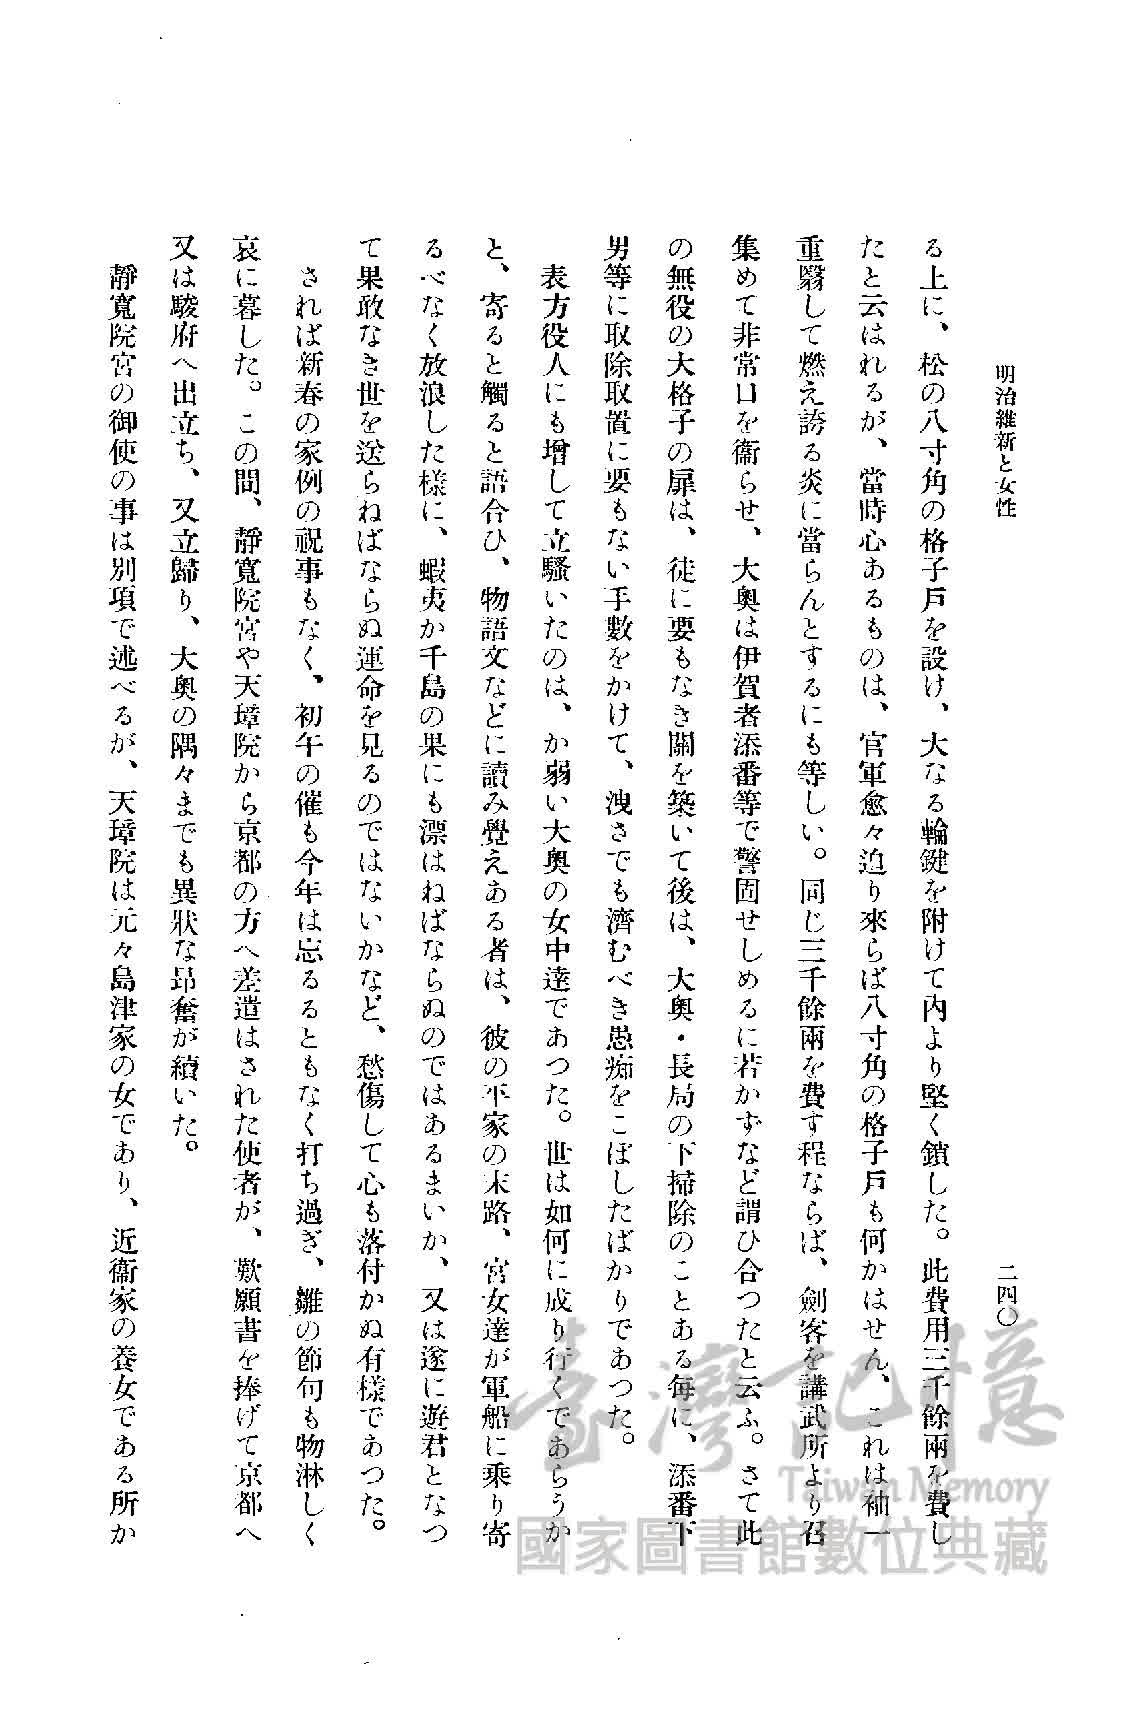 明治維新と女性
二四〇
る上に、松の八寸角の格子戸を設け、大なる輪鍵を附けて内より堅く鎖した。此費用三千餘兩を費し
たと云はれるが、當時心あるものは、官軍愈々迫り來らば八寸角の格子戸も何かはせん、これは袖一
重翳して燃え誇る炎に當らんとするにも等しい。同じ三千餘兩を費す程ならば、劍客を講武所より召
集めて非常口を衞らせ、大奥は伊賀者添番等で警固せしめるに若かずなど謂ひ合つたと云ふ。さて此
の無役の大格子の扉は、徒に要もなき關を築いて後は、大奥・長局の下掃除のことある毎に、添番下
男等に取除取置に要もない手數をかけて、洩さでも濟むべき愚痴をこぼしたばかりであつた。
表方役人にも增して立騷いたのは、か弱い大奥の女中達であつた。世は如何に成り行くであらうか
と、寄ると觸ると語合ひ、物語文などに讀み覺えある者は、彼の平家の末路、宮女達が軍船に乘り寄
るべなく放浪した樣に、蝦夷か千島の果にも漂はねばならぬのではあるまいか、又は遂に遊君となつ
て果敢なき世を送らねばならぬ運命を見るのではないかなど、愁傷して心も落付かぬ有樣であつた。
されば新春の家例の祝事もなく、初午の催も今年は忘るるともなく打ち過ぎ、雛の節句も物淋しく
哀に暮した。この間、靜寬院宮や天璋院から京都の方へ差遣はされた使者が、歎願書を捧げて京都へ
又は駿府へ出立ち、又立歸り、大奥の隅々までも異狀な昻奮が續いた。
靜寬院宮の御使の事は別項で述べるが、天璋院は元々島津家の女であり、近衞家の養女である所か
臺灣記憶
Taiwan Memory
國家圖書館數位典藏